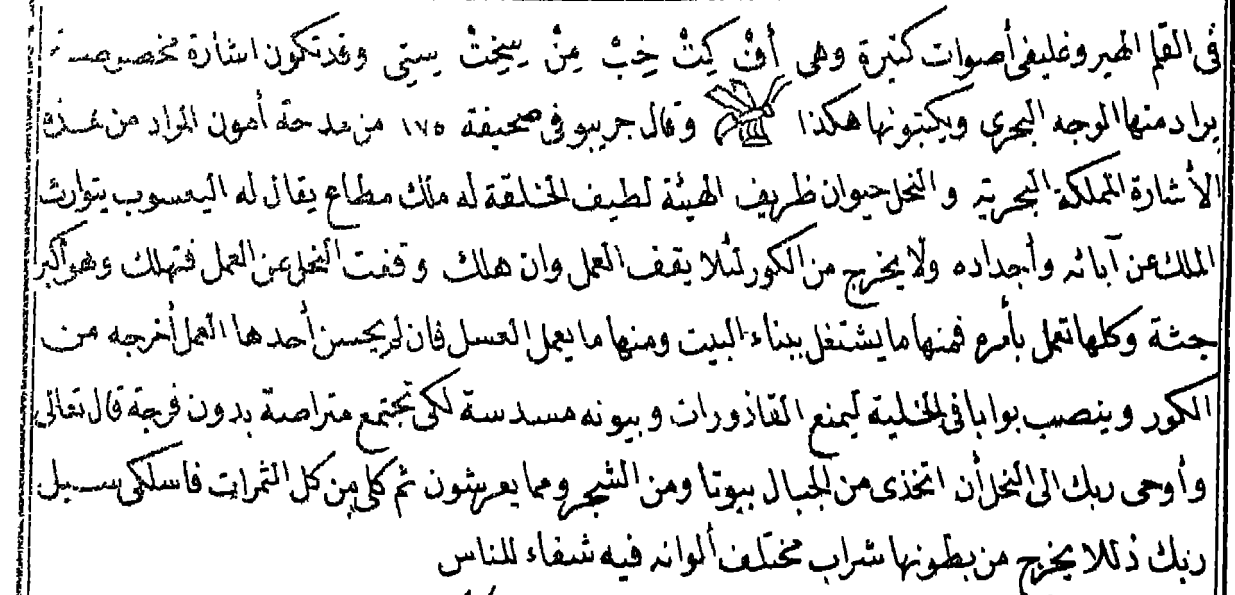 في القلم الهيروغليفي أصوات كثيرة وهي أَفْ كِيتْ خِبْ مِنْ سِخِتْ سِتِي وقد تكون اشارة مخصوصة
يراد منها الوجه البحري ويكتبونها هكذا وقال جريبو في صحيفة ١٧٥ من مدحة أمون المراد من هذه
الأشارة المملكة البحرية و النحل حيوان ظريف الهيئة لطيف الخلقة له ملك مطاع يقال له اليعسوب يتوارث
الملك عن آبائه وأجداده ولا يخرج من الكور لئلا يقف العمل وان هلك وقفت النحل عن العمل فتهلك وهو أكبر
جثة وكلها تعمل بأمره فمنها ما يشتغل ببناء البيت ومنها ما يعمل العسل فان لم يحسن أحدها العمل أخرجه من
الكور وينصب بوابا في الخلية ليمنع القاذورات وبيوته مسدسة لكي تجتمع متراصة بدون فرجة قال تعالى
وأوحى ربك الى النحل أن اتخذى من الجبال بيوتا ومن الشجر ومما يعرشون ثم كلى من كل الثمرات فاسلكى سبل
ربك ذللا يخرج من بطونها شراب مختلف ألوانه فيه شفاء للناس